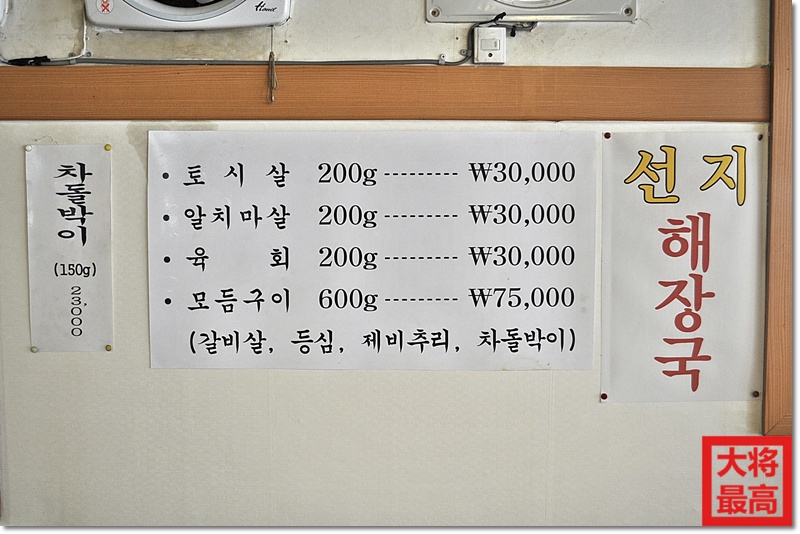 차돌박이
(150g)
23,000
• 토시살 200g --------- ₩30,000
• 알치마살 200g --------- ₩30,000
• 육회 200g --------- ₩30,000
• 모듬구이 600g --------- ₩75,000
(갈비살, 등심, 제비추리, 차돌박이)
선지
해장국
大将
最高